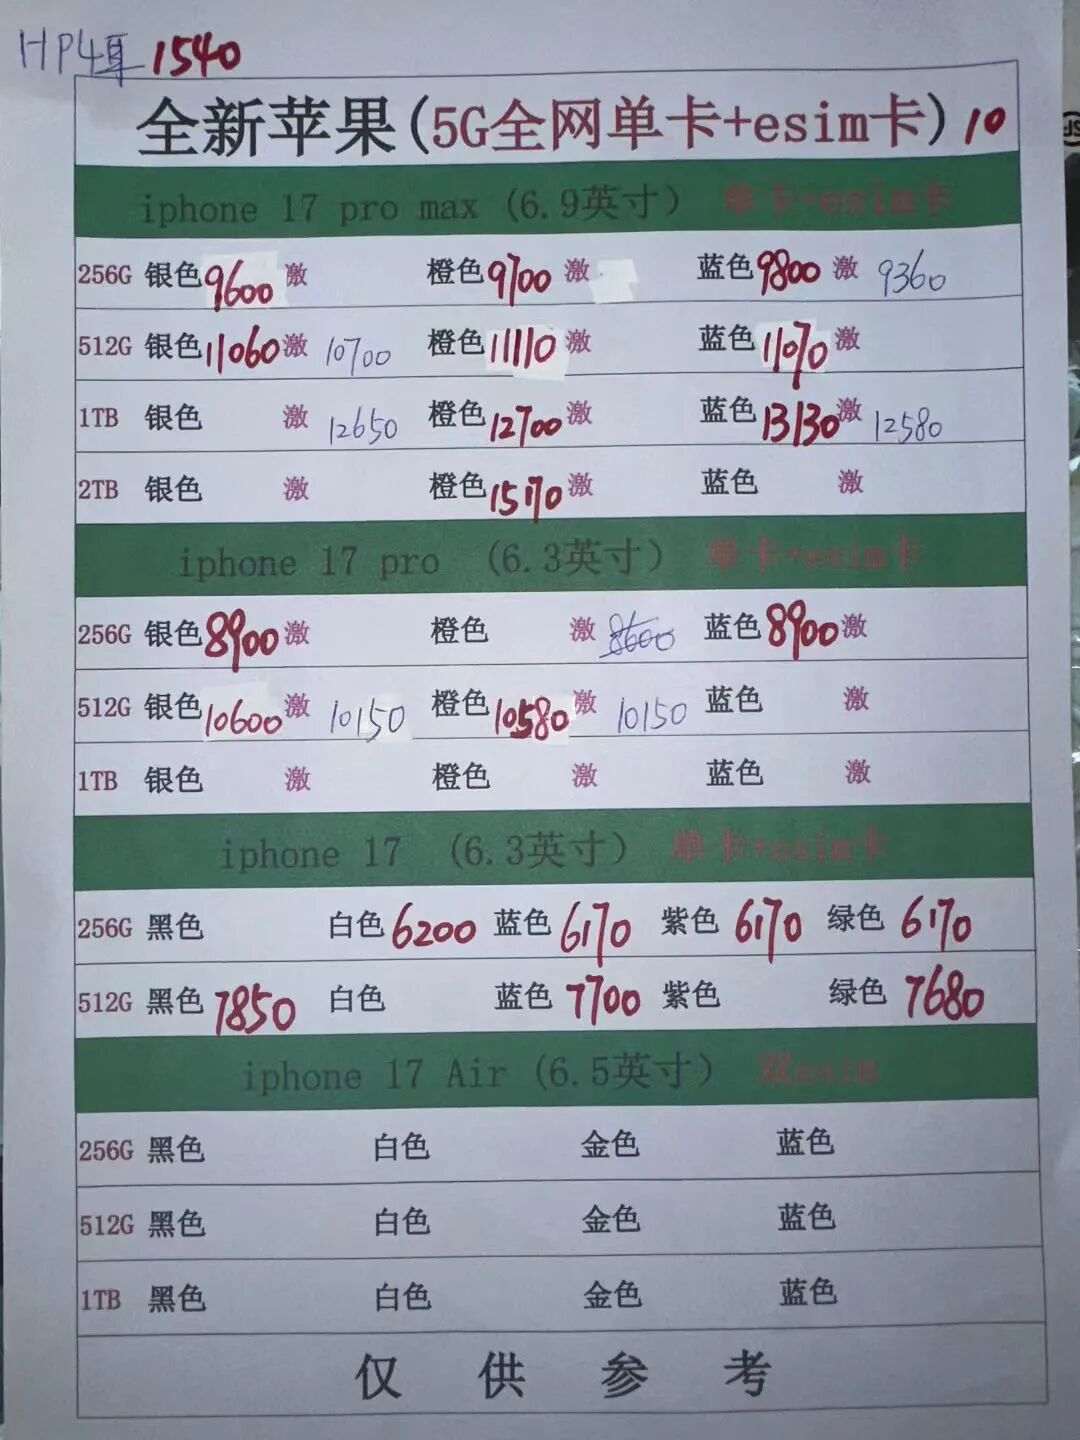 HP4耳 1540
全新苹果(5G全网单卡+esim卡) 10
iphone 17 pro max (6.9英寸) 单卡+esim卡
256G 银色 9600 激 橙色 9700 激 蓝色 9800 激 9360
512G 银色 11060 激 10700 橙色 11110 激 蓝色 11070 激
1TB 银色 激 12650 橙色 12700 激 蓝色 13130 激 12580
2TB 银色 激 橙色 15170 激 蓝色 激
iphone 17 pro (6.3英寸) 单卡+esim卡
256G 银色 8900 激 橙色 激 8600 蓝色 8900 激
512G 银色 10600 激 10150 橙色 10580 激 10150 蓝色 激
1TB 银色 激 橙色 激 蓝色 激
iphone 17 (6.3英寸) 单卡+esim卡
256G 黑色 白色 6200 蓝色 6170 紫色 6170 绿色 6170
512G 黑色 7850 白色 蓝色 7700 紫色 绿色 7680
iphone 17 Air (6.5英寸) 双esim
256G 黑色 白色 金色 蓝色
512G 黑色 白色 金色 蓝色
1TB 黑色 白色 金色 蓝色
仅供参考